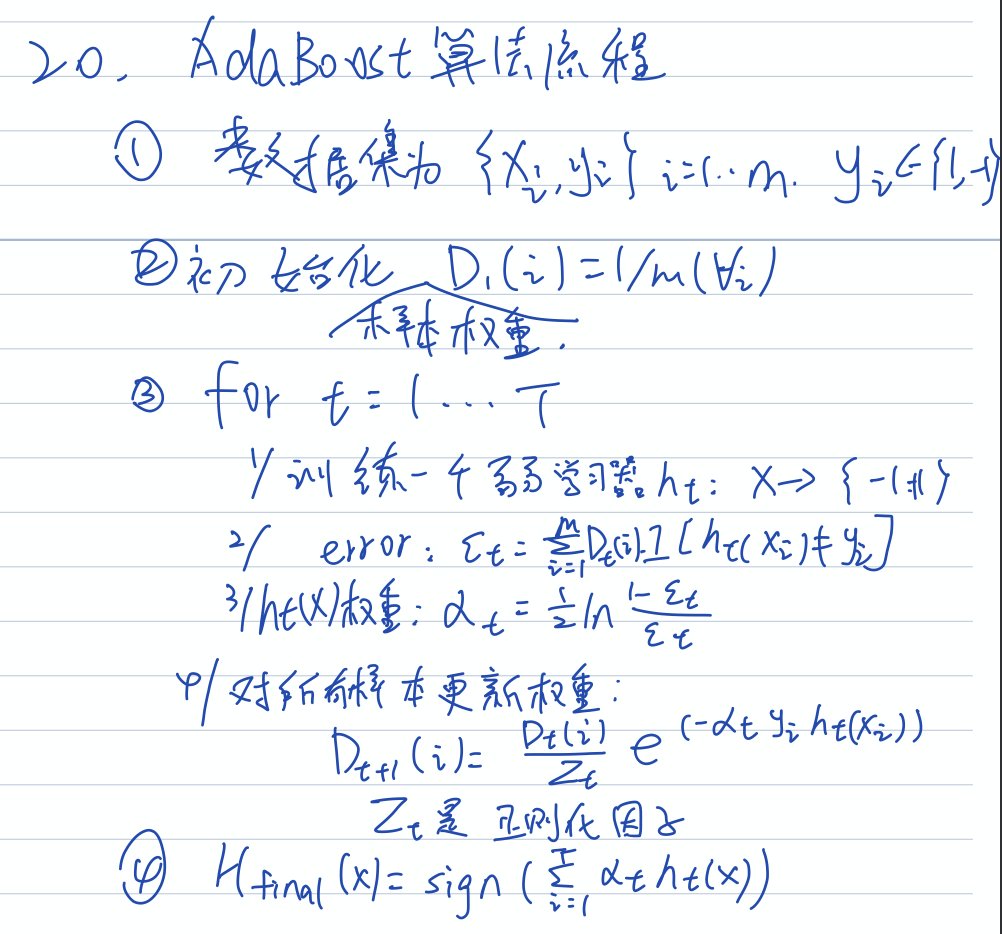 20. AdaBoost 算法流程
① 数据集为 {xᵢ, yᵢ} i=1..m. yᵢ∈{1,-1}
② 初始化 D₁(i)=1/m(∀i)
样本权重.
③ for t = 1 ... T
1/ 训练一个弱学习器 hₜ: X→{-1,+1}
2/ error: εₜ = ∑ᵢ₌₁ᵐ Dₜ(i)·1[hₜ(xᵢ)≠yᵢ]
3/ hₜ(x)权重: αₜ = ½ ln (1-εₜ)/εₜ
4/ 对所有样本更新权重:
Dₜ₊₁(i)= Dₜ(i)/Zₜ e^(-αₜ yᵢ hₜ(xᵢ))
Zₜ是 正则化因子
④ H_final(x)= sign(∑ᵢ₌₁ᵀ αₜ hₜ(x))